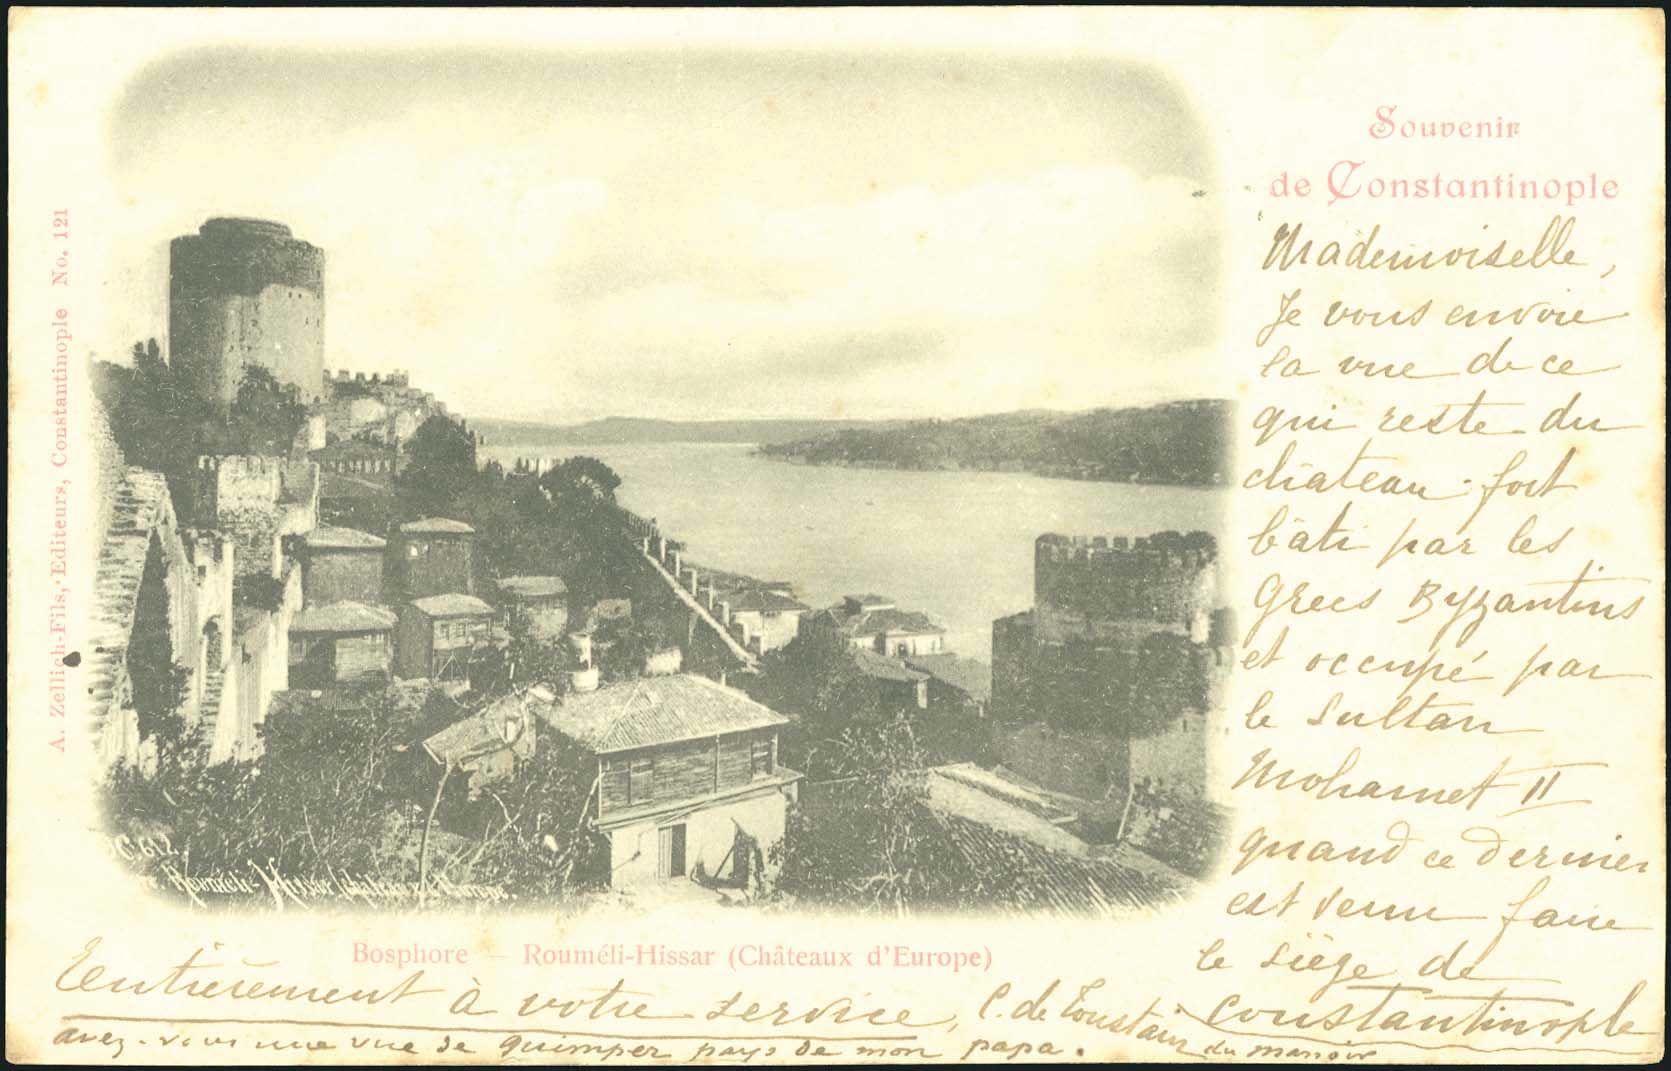 Souvenir
de Constantinople
Mademoiselle,
Je vous envoie
la vue de ce
qui reste du
château-fort
bâti par les
Grecs Byzantins
et occupé par
le Sultan
Mohamet II
quand ce dernier
est venu faire
le siège de
Constantinople
Entièrement à votre service, C. de Toustain du manoir
avez-vous une vue de quimper pays de mon papa.
Bosphore — Rouméli-Hissar (Châteaux d'Europe)
A. Zellich-Fils, Editeurs, Constantinople No. 121
612. Rouméli-Hissar Château d'Europe.